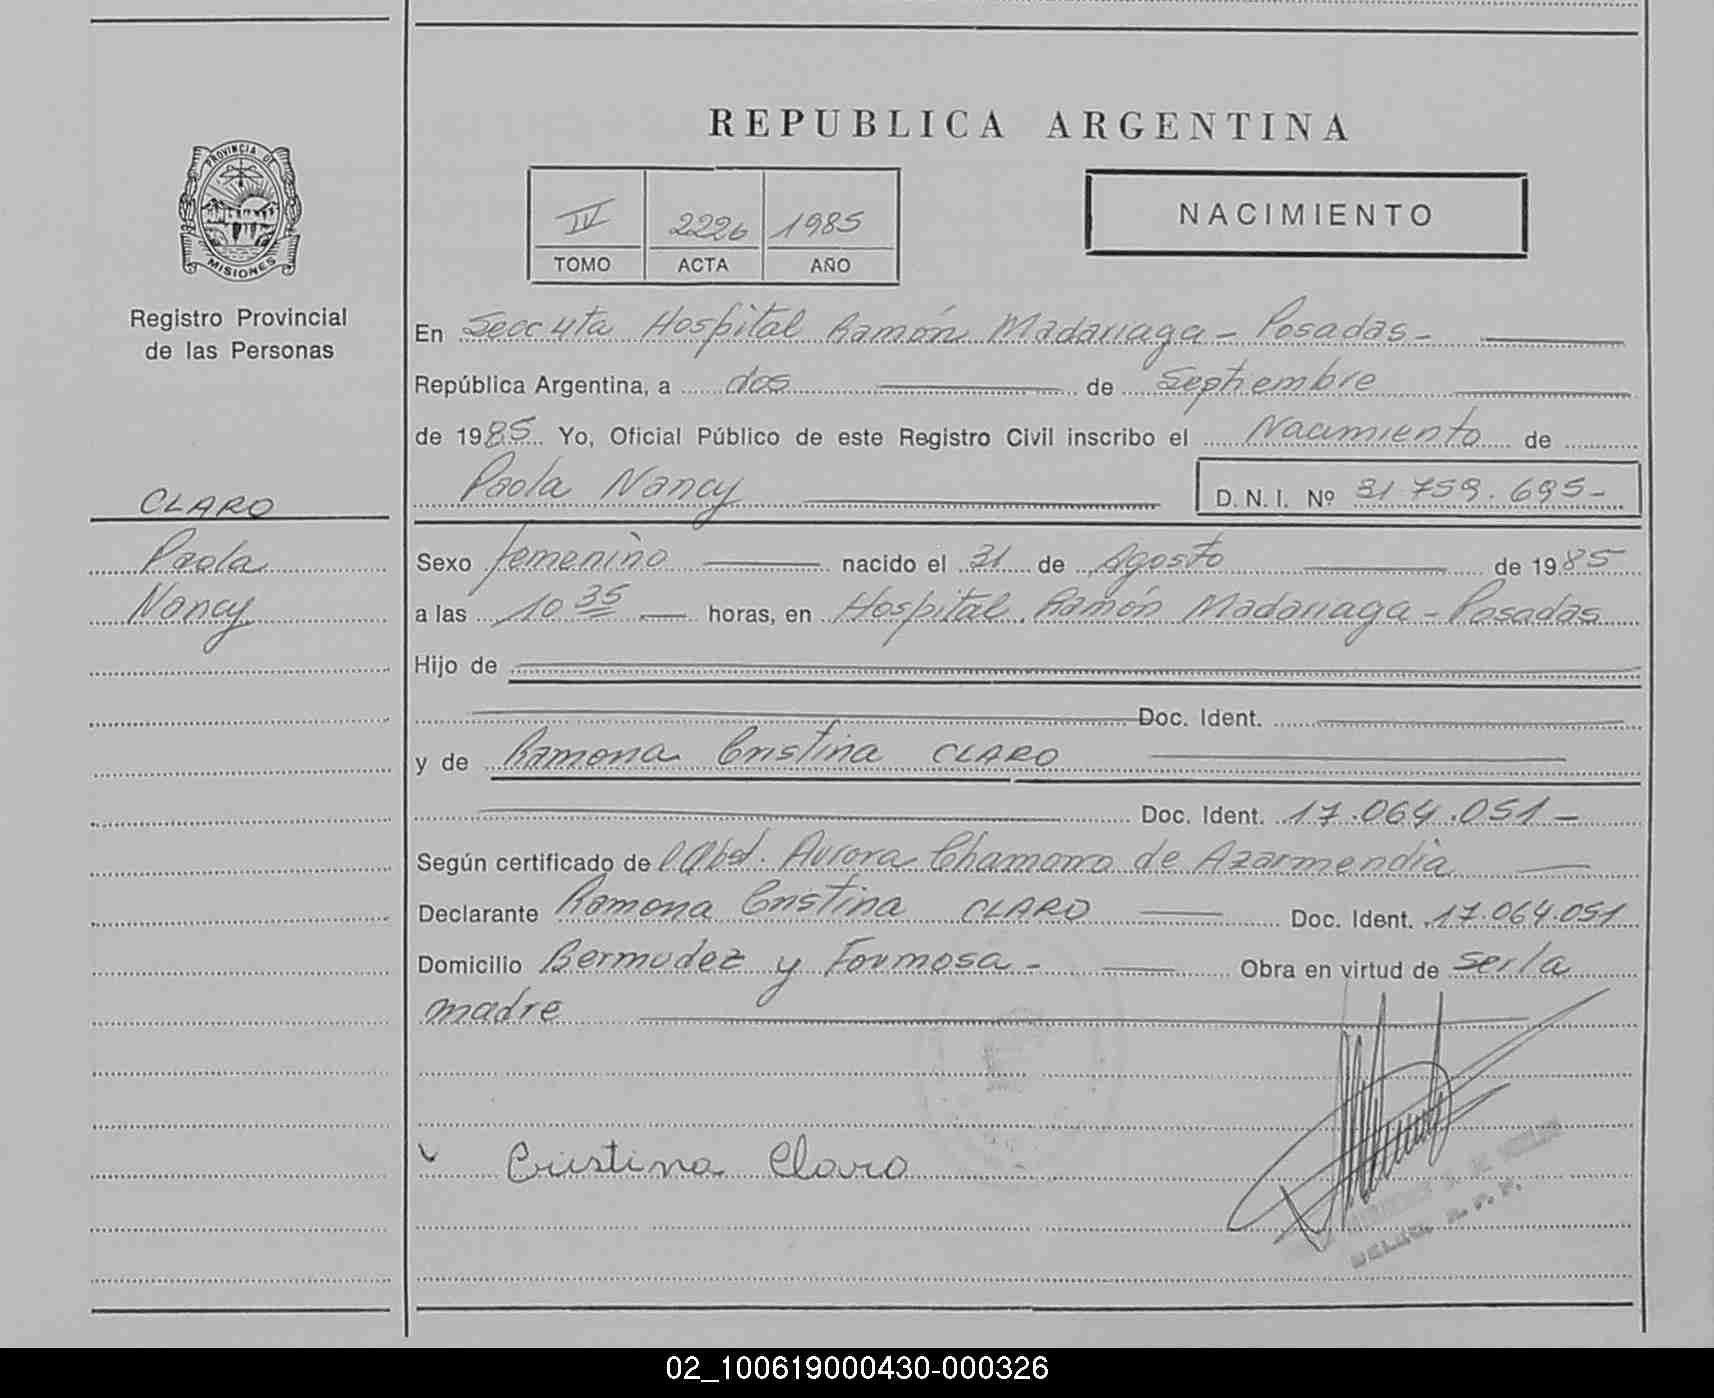 REPUBLICA ARGENTINA
PROVINCIA DE MISIONES
Registro Provincial
de las Personas
IV 2226 1985
TOMO ACTA AÑO
NACIMIENTO
En Secc 4ta Hospital Ramón Madariaga - Posadas -
República Argentina, a dos de Septiembre
de 1985 Yo, Oficial Público de este Registro Civil inscribo el Nacimiento de
Paola Nancy D. N. I. Nº 31 759.695-
CLARO
Paola
Nancy
Sexo femenino nacido el 31 de Agosto de 1985
a las 10 35 horas, en Hospital Ramón Madariaga - Posadas
Hijo de
Doc. Ident.
y de Ramona Cristina CLARO
Doc. Ident. 17.064.051-
Según certificado de Obst. Aurora Chamorro de Azarmendia
Declarante Ramona Cristina CLARO Doc. Ident. 17.064.051
Domicilio Bermudez y Formosa - Obra en virtud de ser la
madre
Cristina Claro
02_100619000430-000326